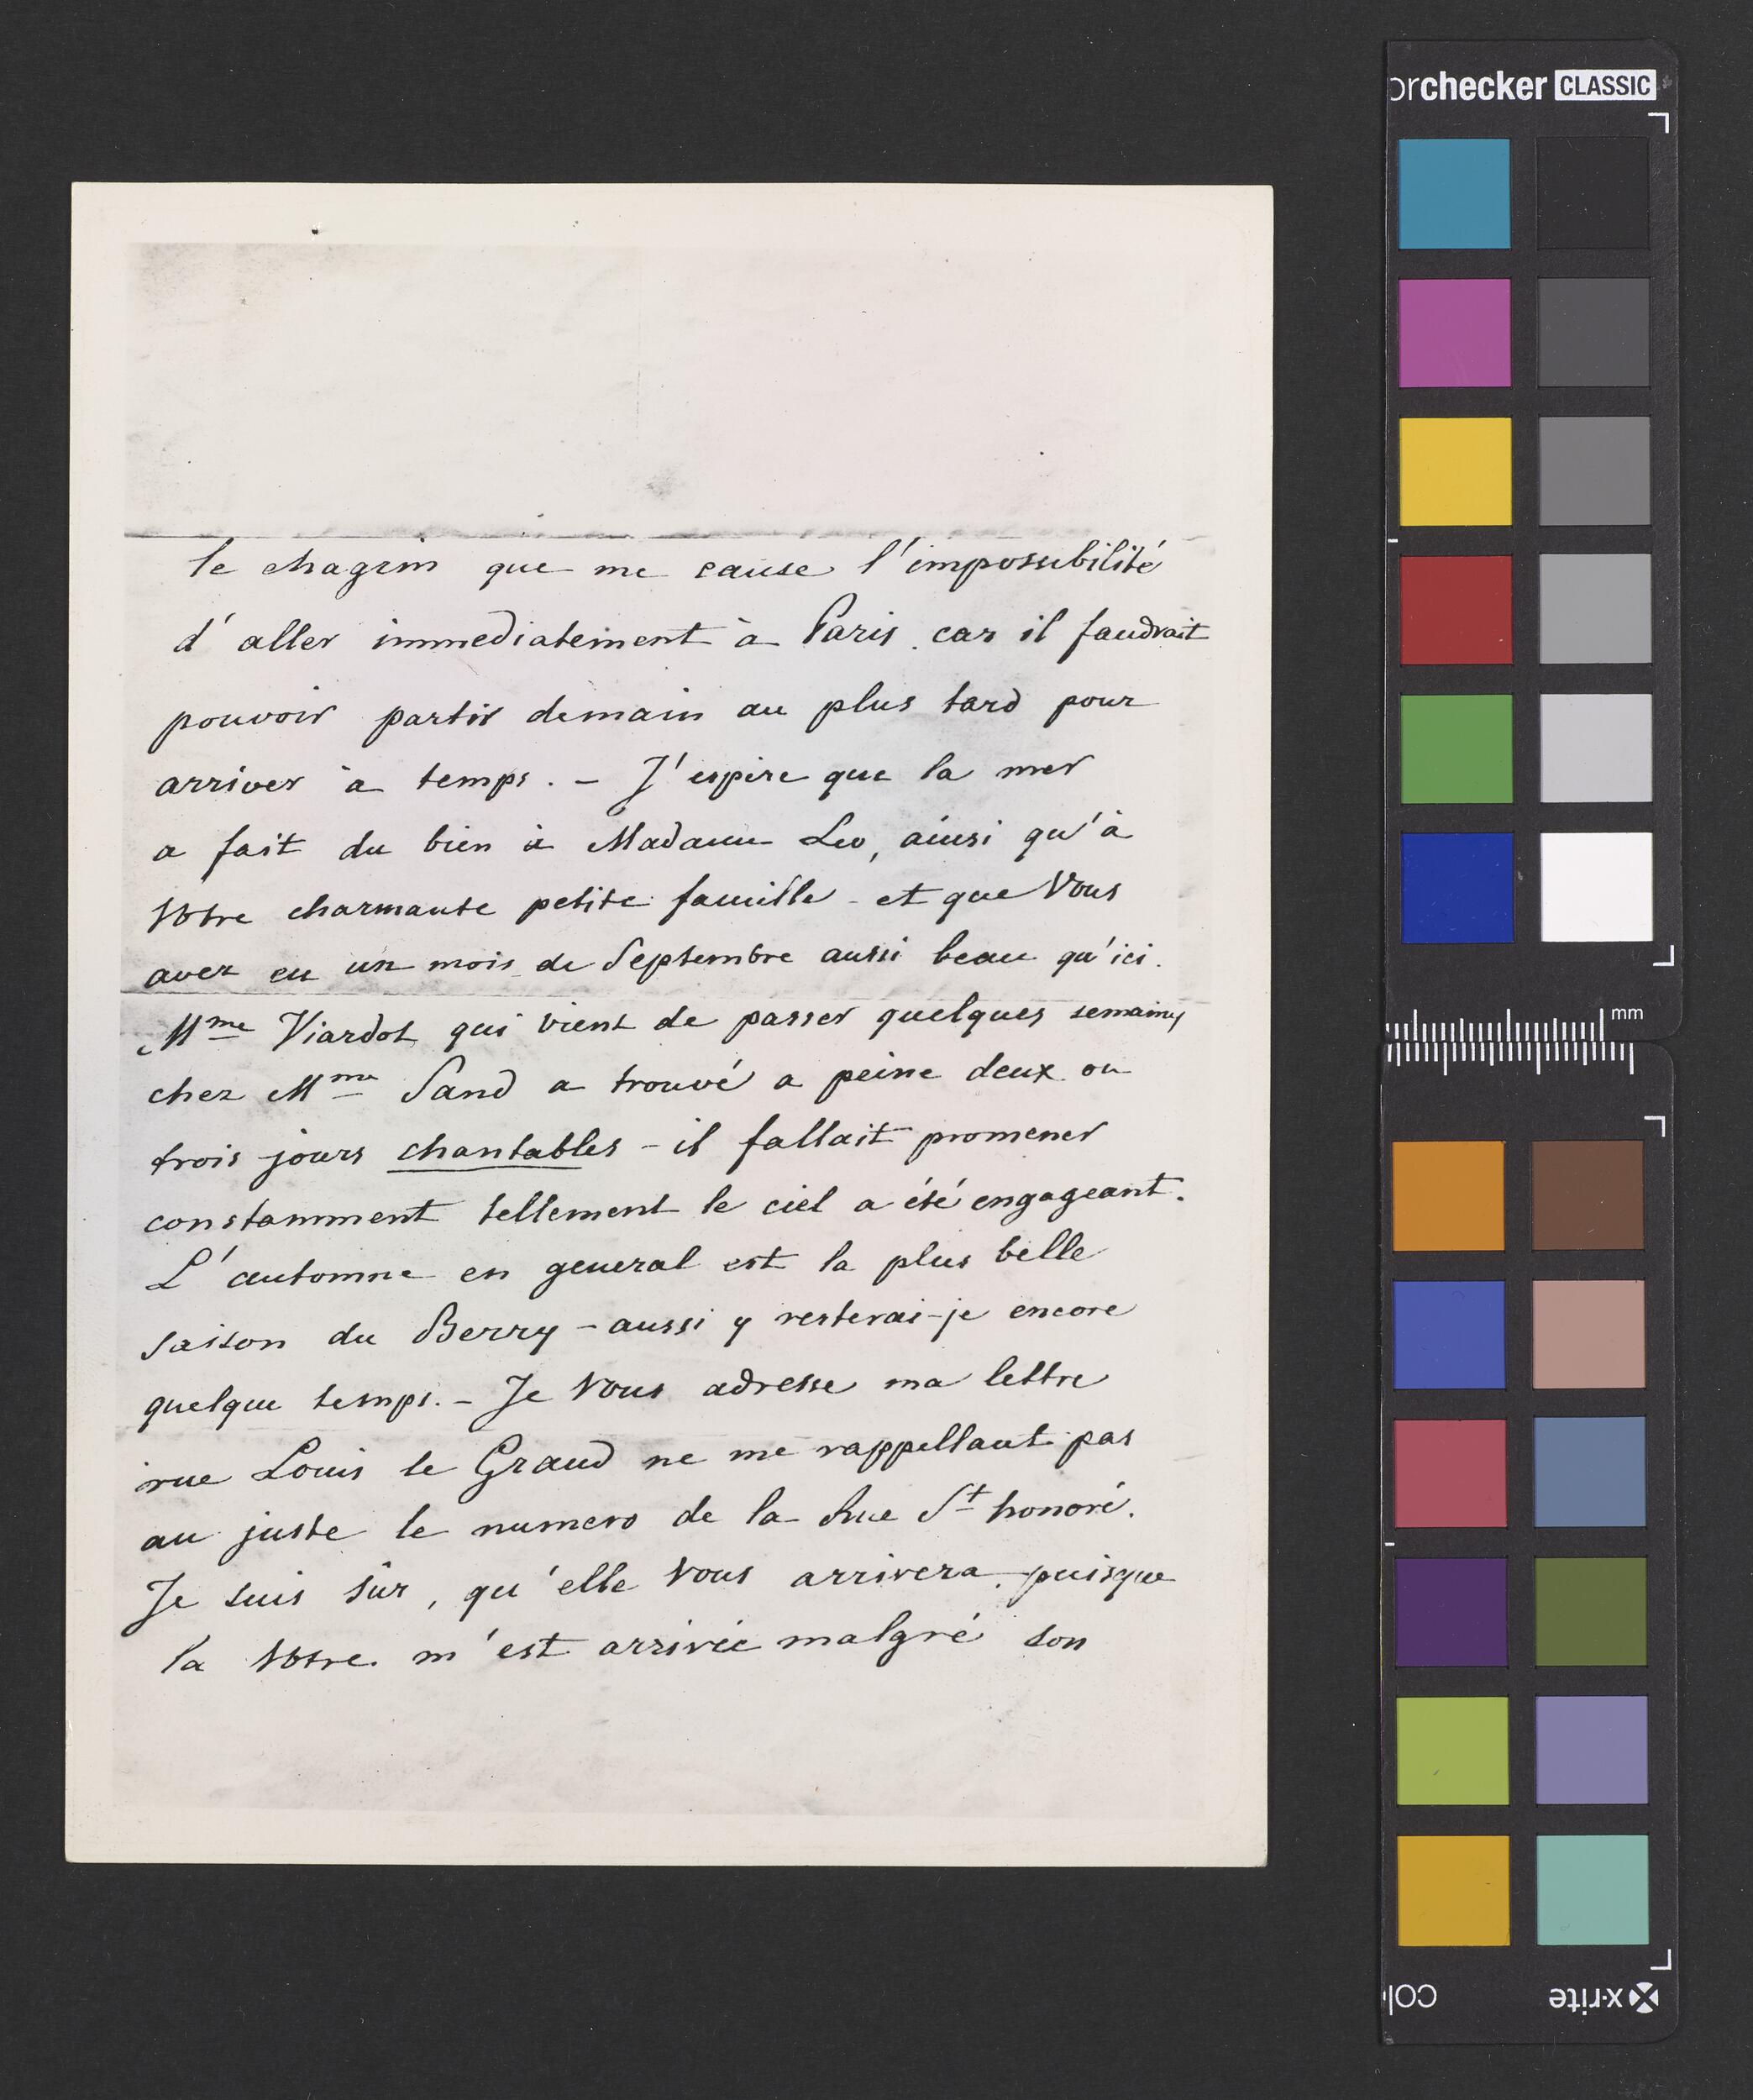 orchecker CLASSIC
le chagrin que me cause l'impossibilité
d'aller immediatement à Paris. car il faudrait
pouvoir partir demain au plus tard pour
arriver à temps. – J'espère que la mer
a fait du bien à Madame Leo, ainsi qu'à
Votre charmante petite famille – et que Vous
avez eu un mois de Septembre aussi beau qu'ici.
Mme Viardot qui vient de passer quelques semaines
chez Mme Sand a trouvé a peine deux ou
trois jours chantables – il fallait promener
constamment tellement le ciel a été engageant.
L'automne en general est la plus belle
saison du Berry – aussi y resterai-je encore
quelque temps. – Je Vous adresse ma lettre
rue Louis le Grand ne me rappellant pas
au juste le numero de la Rue St honoré.
Je suis sûr, qu'elle Vous arrivera. puisque
la Votre m'est arrivée malgré son
mm
x·rite
col